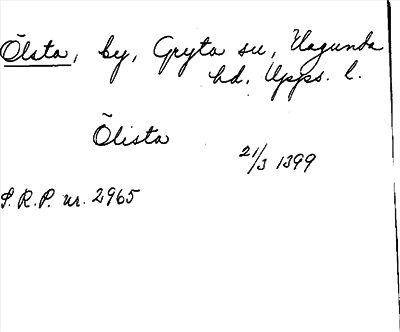 Õlsta, by, Gryta sn, Hagunda
hd, Upps. l.
Õlista
21/3 1399
S.R.P. nr. 2965